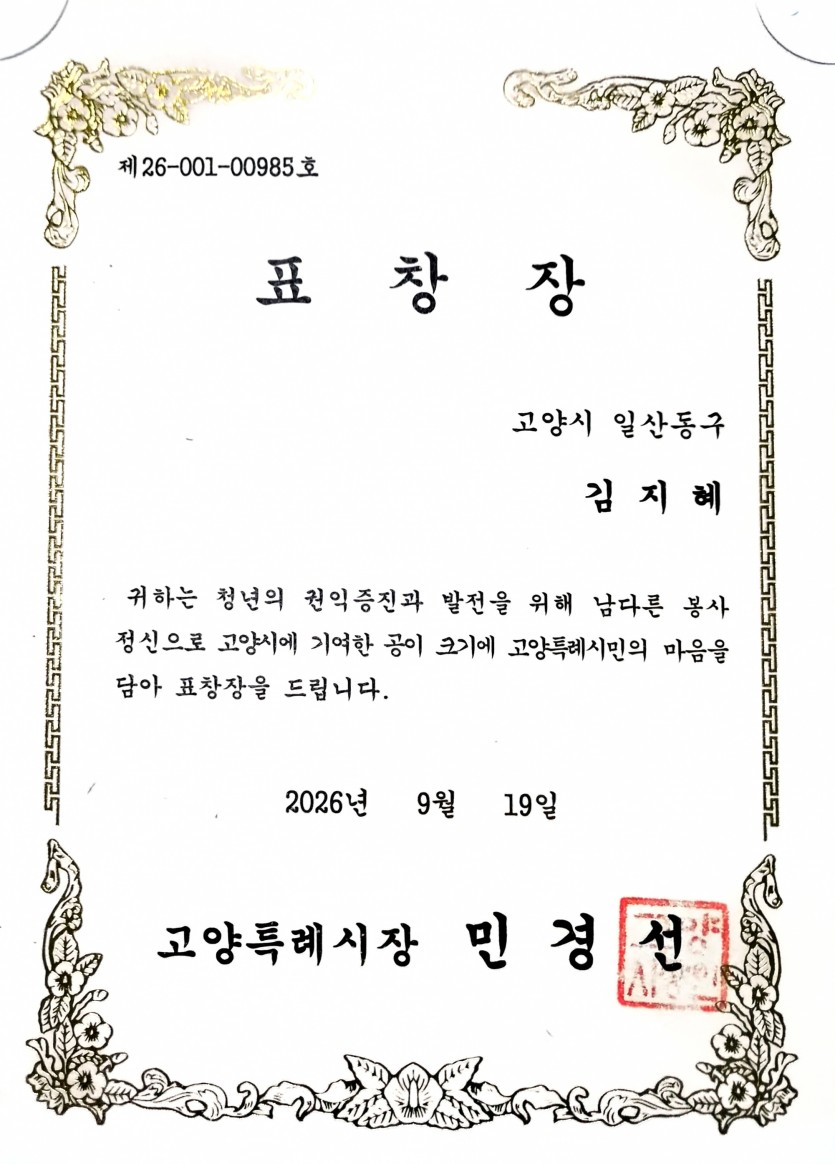 제26-001-00985호
표 창 장
고양시 일산동구
김 지 혜
귀하는 청년의 권익증진과 발전을 위해 남다른 봉사
정신으로 고양시에 기여한 공이 크기에 고양특례시민의 마음을
담아 표창장을 드립니다.
2026년 9월 19일
고양특례시장 민 경 선